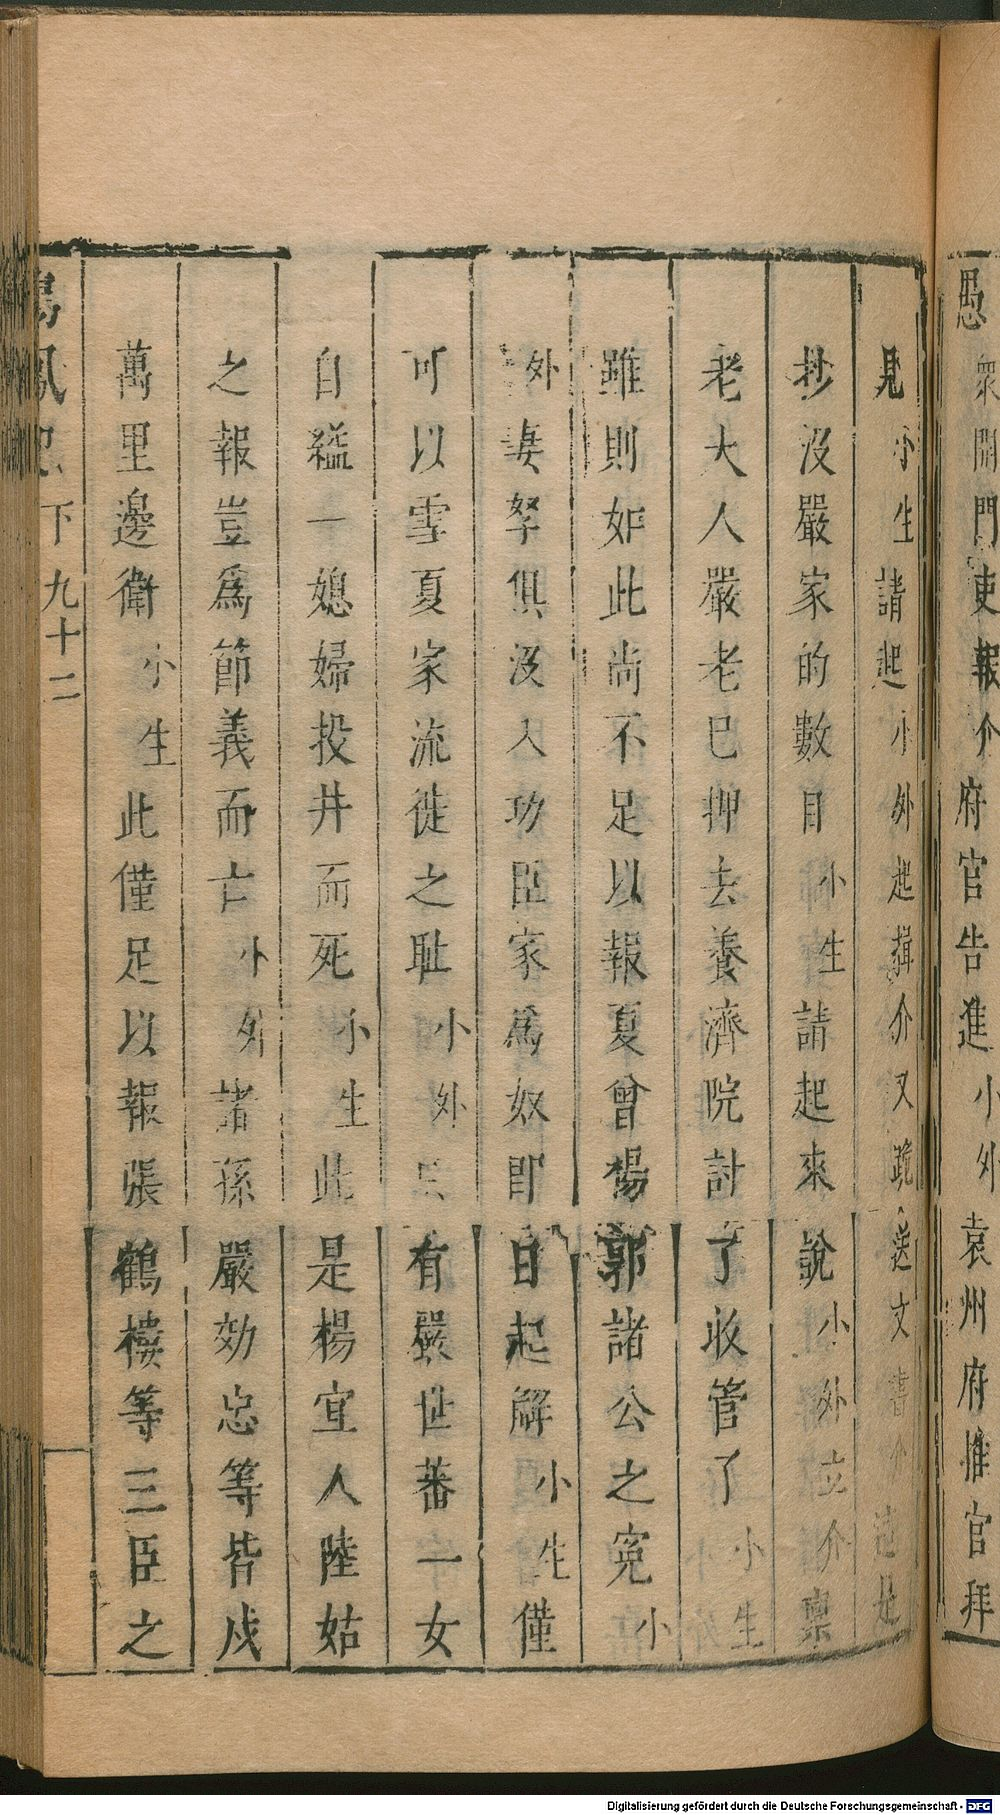 愚衆開門吏報介府官告進小外袁州府推官拜
見小生請起小外起揖介又跪送文書介這是
抄沒嚴家的數目小生請起來說小外立介稟
老大人嚴老已押去養濟院討了收管了小生
雖則如此尚不足以報夏曾楊郭諸公之寃小
外妻孥俱沒入功臣家爲奴即日起解小生僅
可以雪夏家流徙之耻小外有嚴世蕃一女
自縊一媳婦投井而死小生此是楊宜人陸姑
之報豈爲節義而亡小外諸孫嚴効忠等皆戍
萬里邊衛小生此僅足以報張鶴樓等三臣之
鳴鳳記 下 九十二
Digitalisierung gefördert durch die Deutsche Forschungsgemeinschaft - DFG